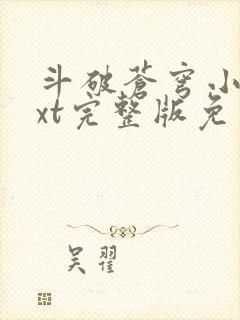 斗破苍穹小
xt完整版免
吴翟